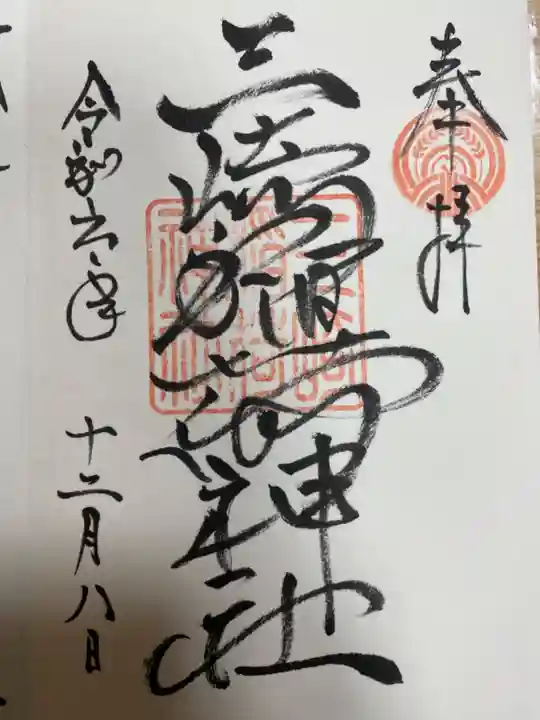 奉拝
三崎稲荷神社
令和六年
十二月八日